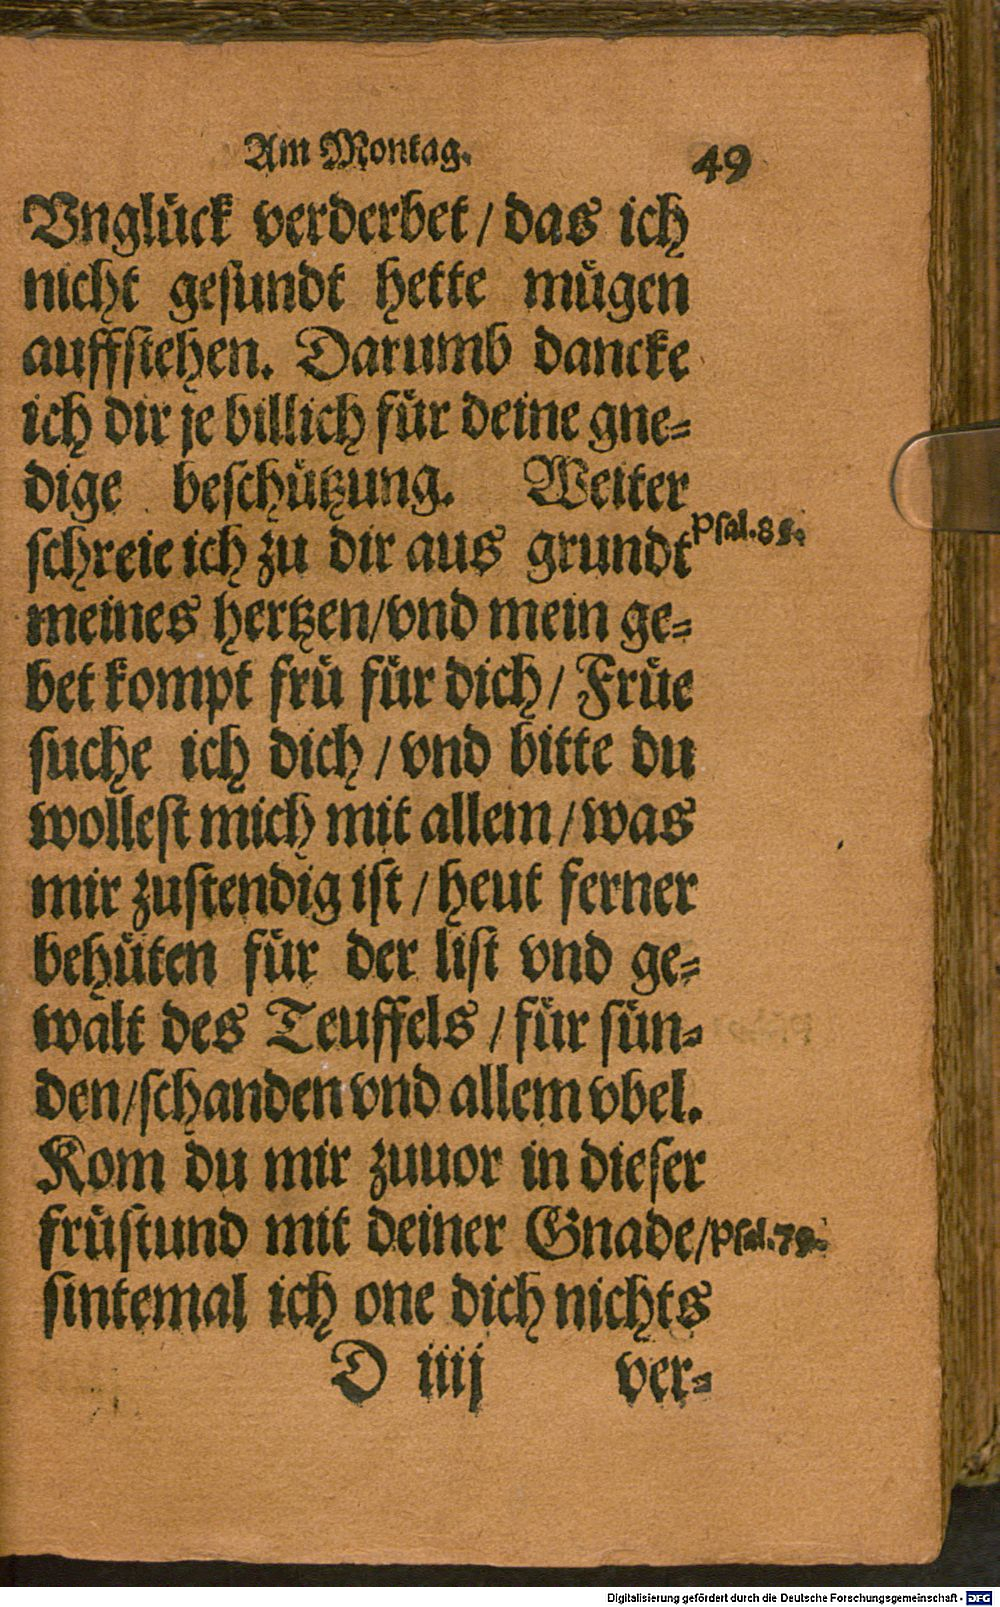 Am Montag. 49
Vnglück verderbet / das ich
nicht gesundt hette mügen
auffstehen. Darumb dancke
ich dir je billich für deine gne=
dige beschützung. Weiter
schreie ich zu dir aus grundt Psal.88.
meines hertzen/vnd mein ge=
bet kompt frü für dich / Früe
suche ich dich / vnd bitte du
wollest mich mit allem / was
mir zustendig ist / heut ferner
behüten für der list vnd ge=
walt des Teuffels / für sün=
den/schanden vnd allem vbel.
Kom du mir zuuor in dieser
früstund mit deiner Gnade/ Psal.79.
sintemal ich one dich nichts
D iiij ver=
Digitalisierung gefördert durch die Deutsche Forschungsgemeinschaft - DFG